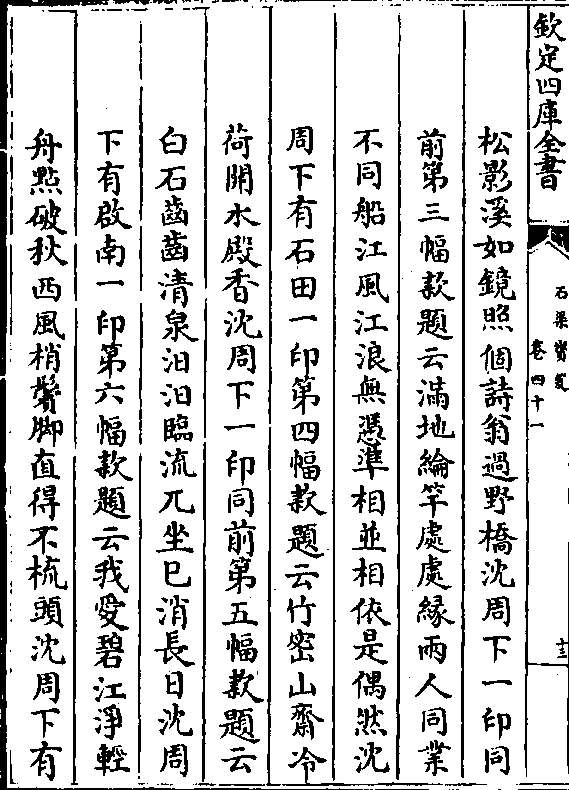 欽定四庫全書
石渠寳笈
卷四十一
十三
松影溪如鏡照個詩翁過野橋沈周下一印同
前第三幅款題云滿地綸竿處處縁兩人同業
不同船江風江浪無憑準相並相依是偶然沈
周下有石田一印第四幅款題云竹宻山齋冷
荷開水殿香沈周下一印同前第五幅款題云
白石齒齒清泉汩汩臨流兀坐已消長日沈周
下有啟南一印第六幅款題云我愛碧江淨輕
舟點破秋西風梢鬢脚直得不梳頭沈周下有